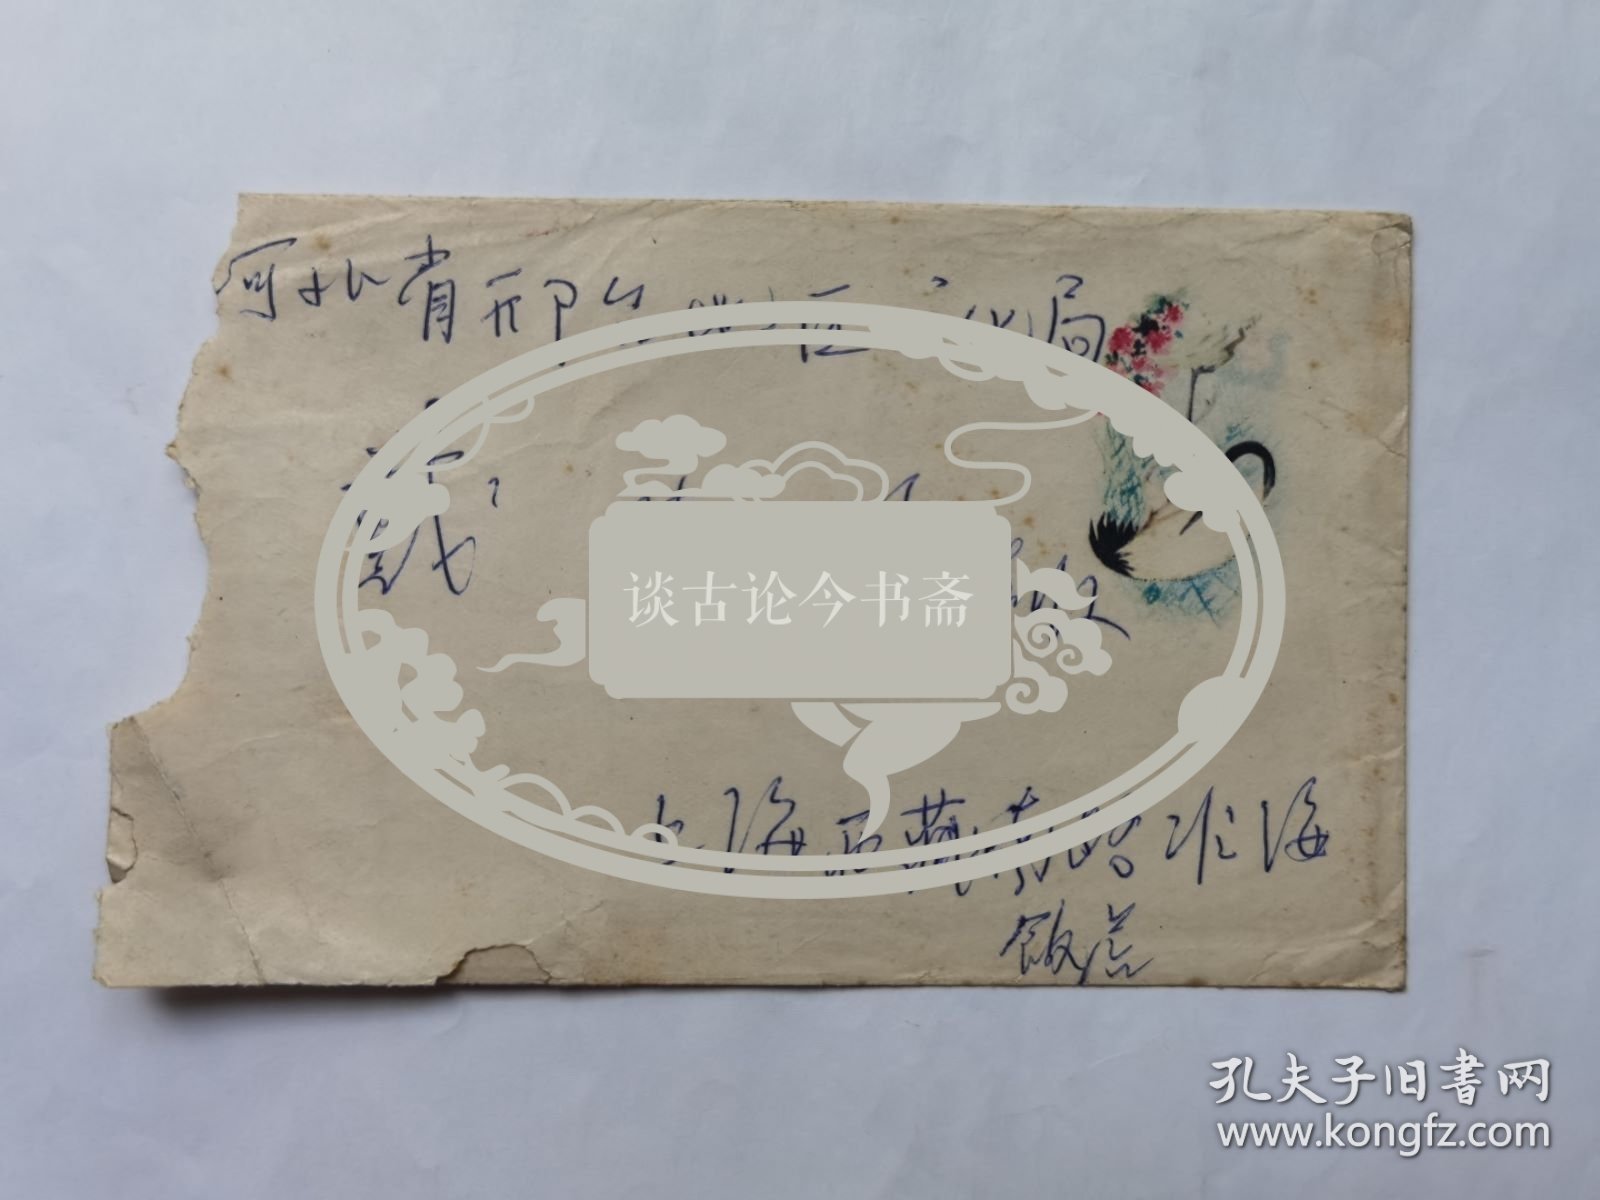 河北省邢台地区文化局
谈古论今书斋
收
上海西藏南路淮海
饭店
孔夫子旧书网
www.kongfz.com